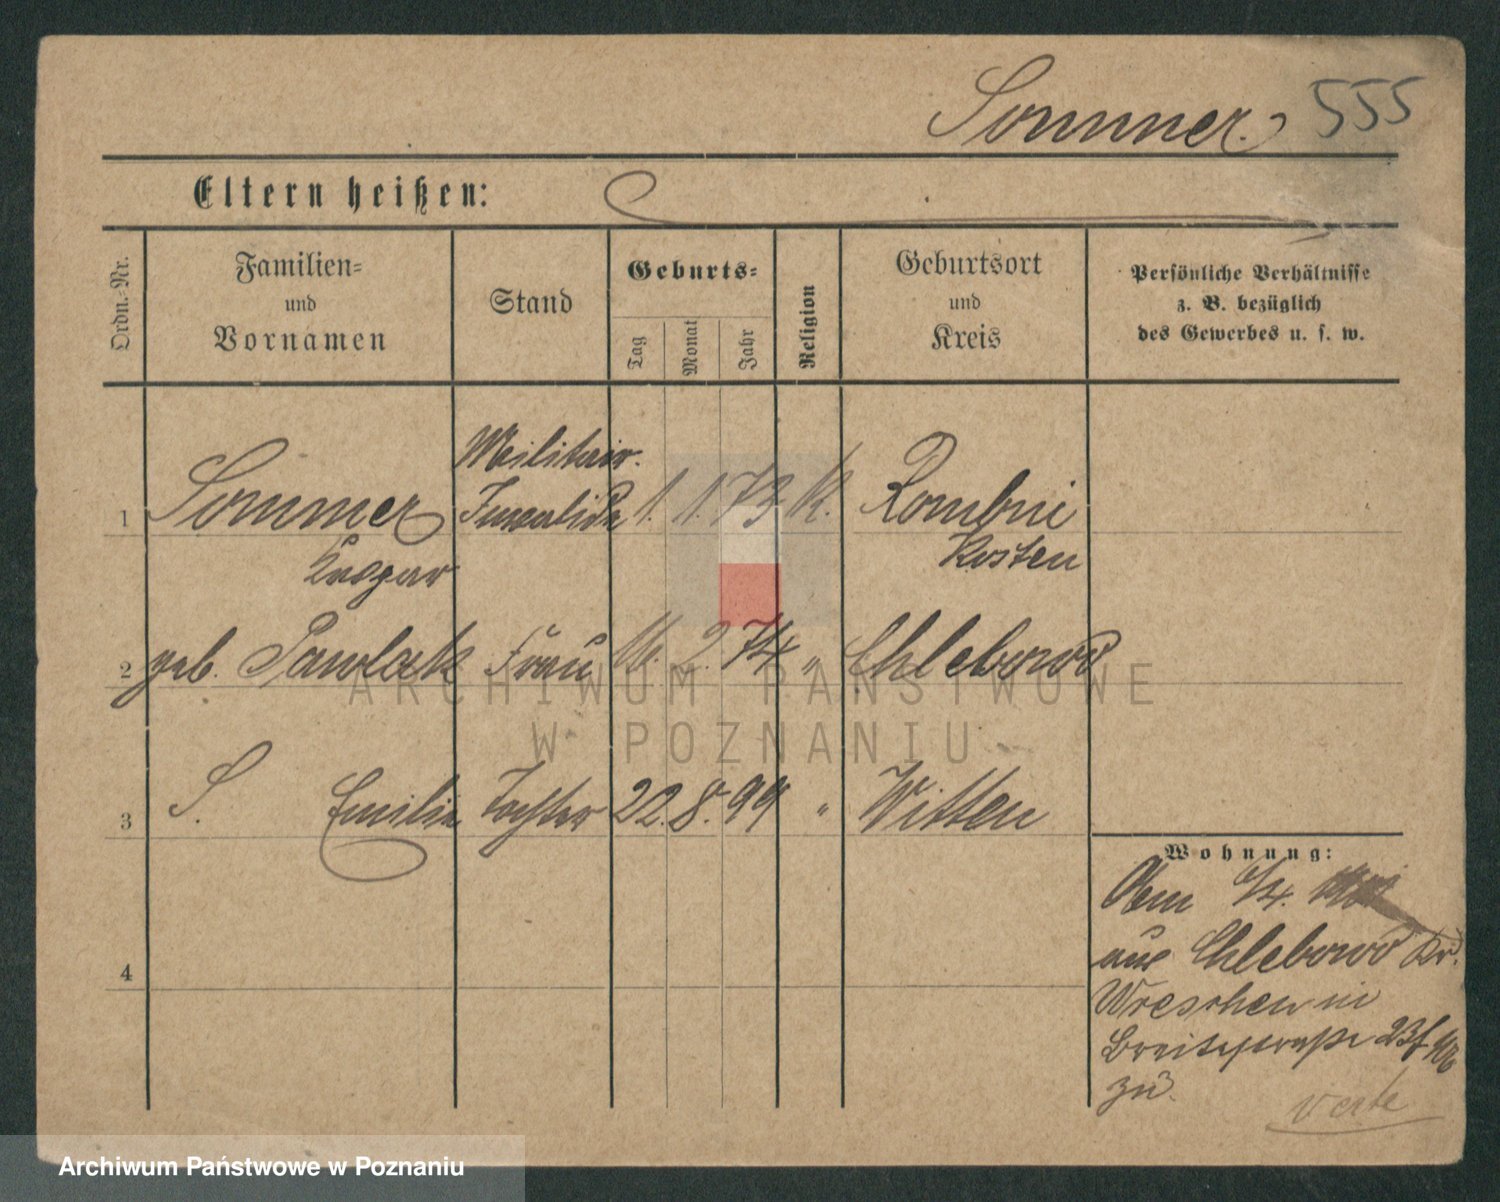 Sommer. 555
Eltern heißen:
Ordn.-Nr.
Familien-
und
Vornamen
Stand
Geburts-
Tag
Monat
Jahr
Religion
Geburtsort
und
Kreis
Persönliche Verhältnisse
z. B. bezüglich
des Gewerbes u. s. w.
1 Sommer Militair. Invalide 1. 1. 73 K. Rombin
Kaspar Kosten
2 geb. Pawlak Frau 16. 2. 74 " Chlebowo
3 S. Emilie Tochter 22. 8. 99 " Witten
4
Wohnung:
Am /4.
aus Chlebowo Kr.
Wreschen in
Breitestraße 23 f
zu.
verte
ARCHIWUM PAŃSTWOWE
W POZNANIU
Archiwum Państwowe w Poznaniu